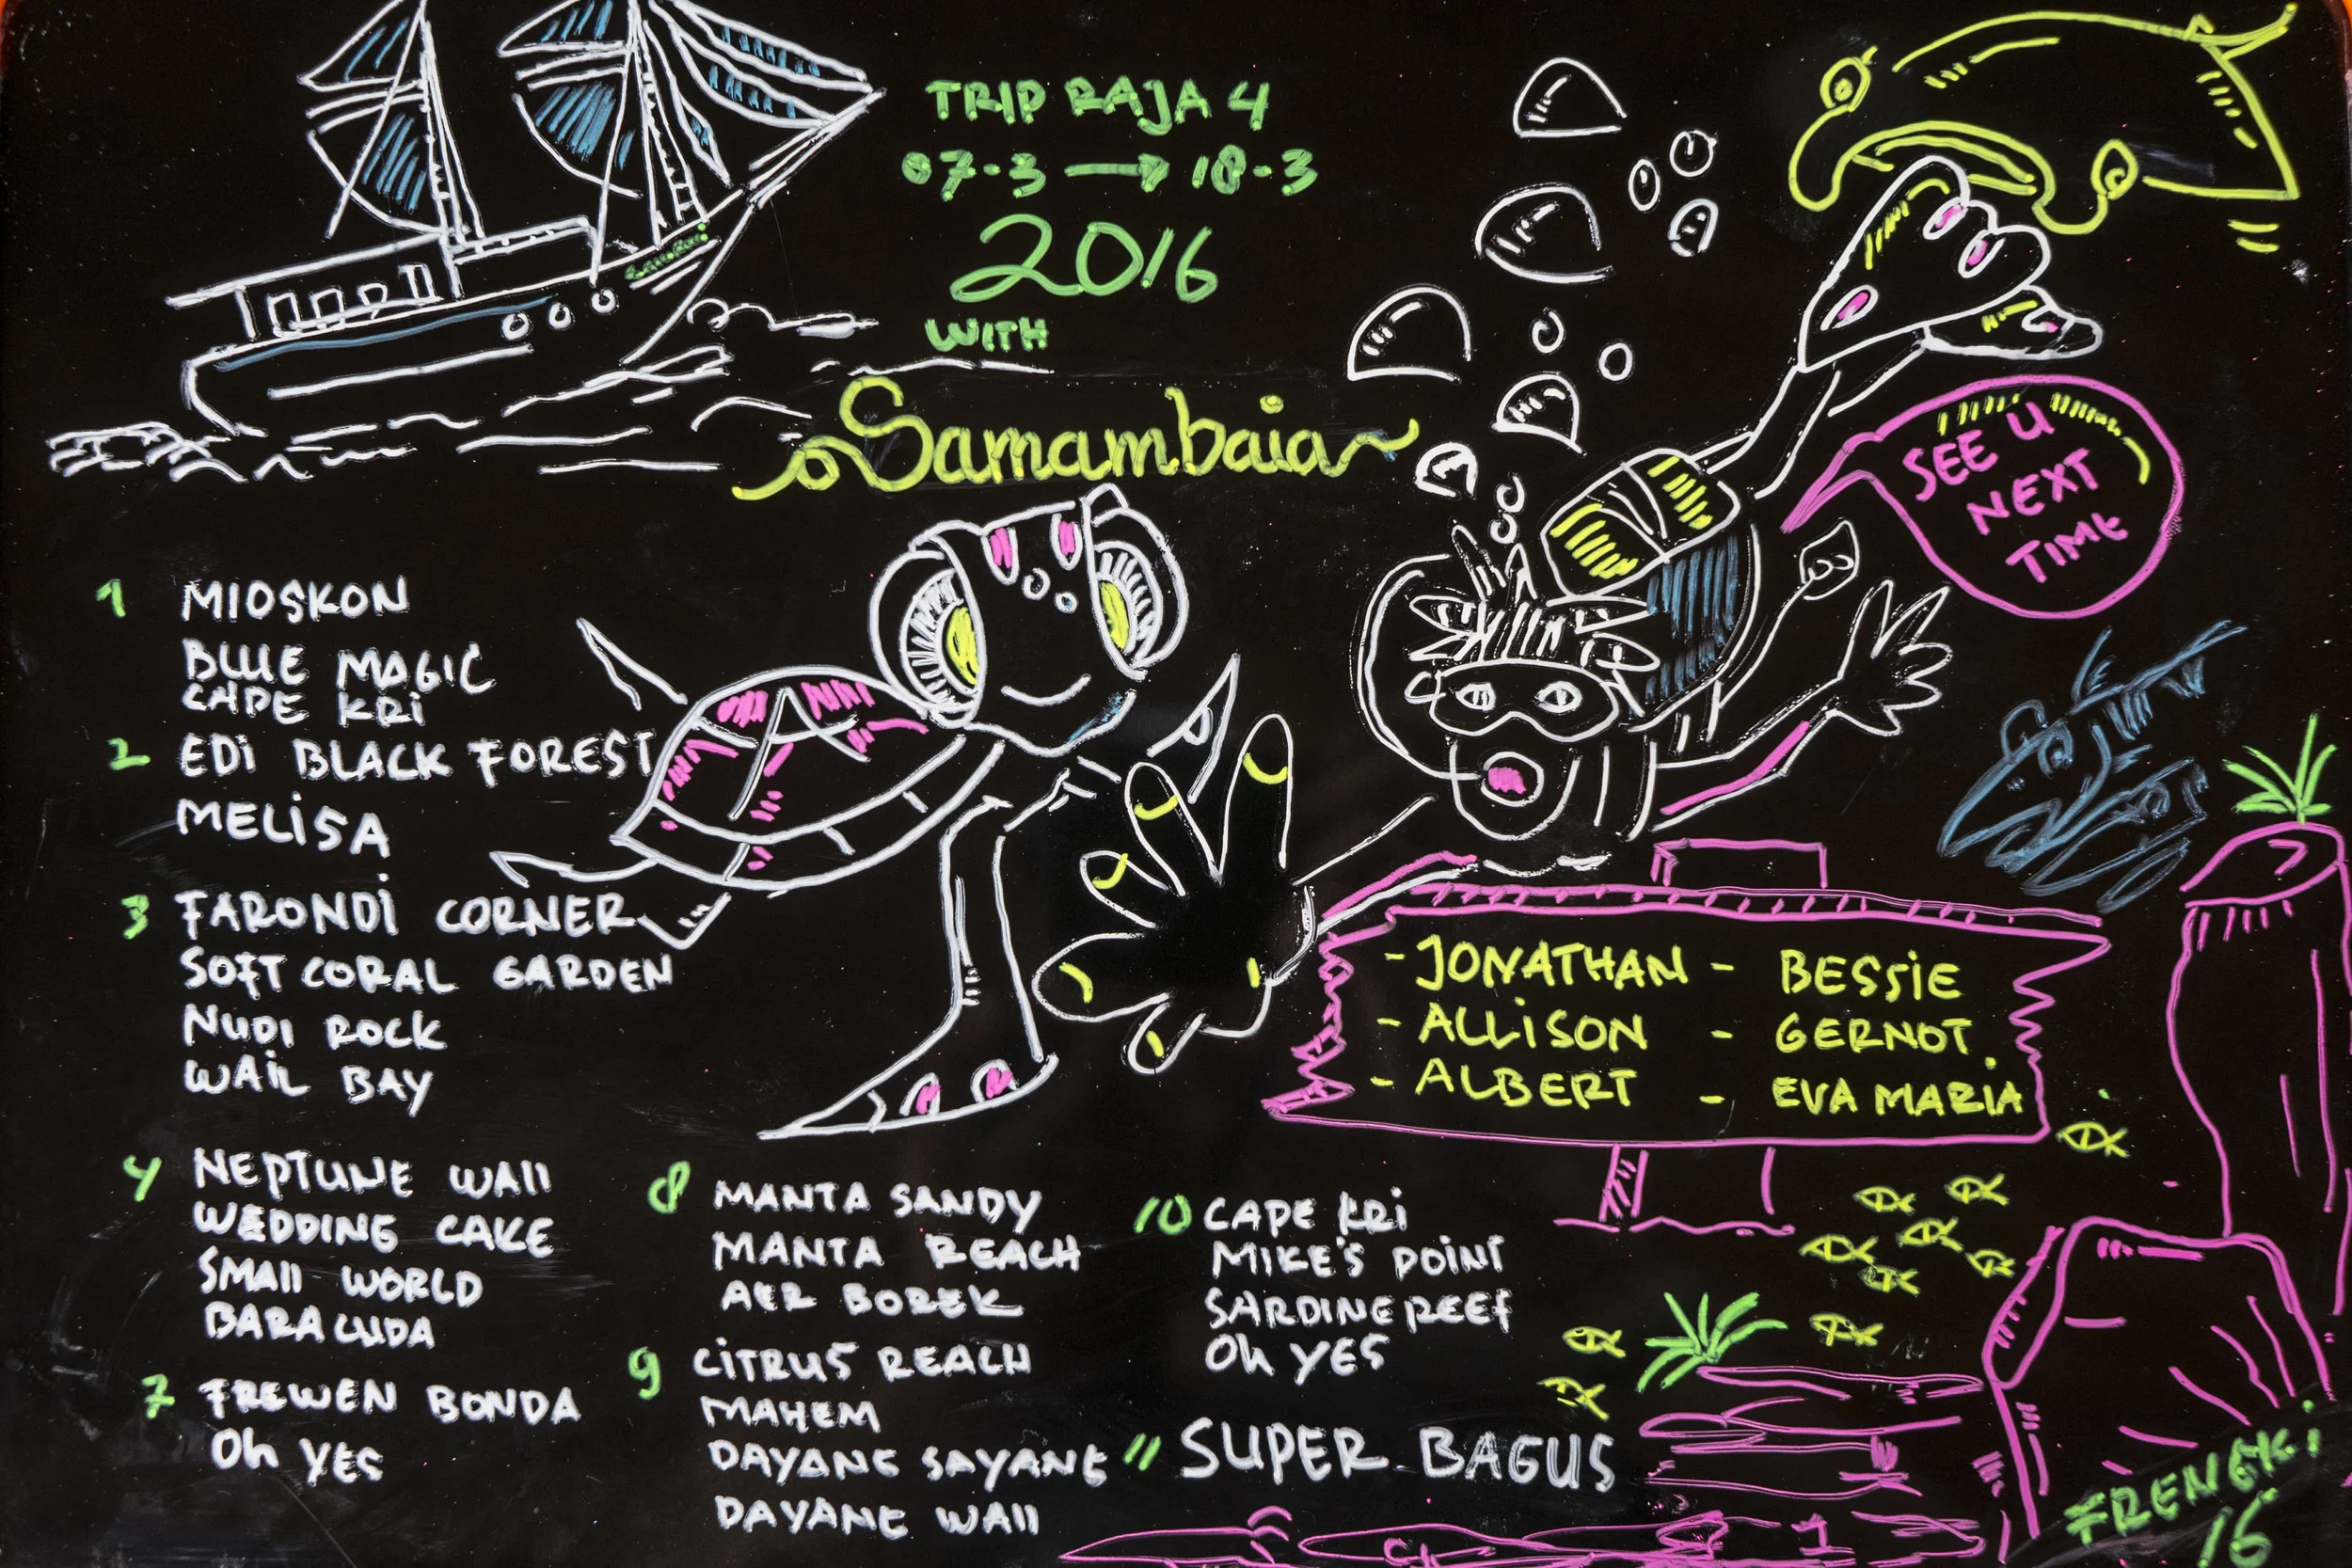 TRIP RAJA 4
07-3 → 18-3
2016
WITH
Samambaia
SEE U
NEXT
TIME
1 MIOSKON
BLUE MAGIC
CAPE KRI
2 EDI BLACK FOREST
MELISA
3 FARONDI CORNER
SOFT CORAL GARDEN
NUDI ROCK
WAIL BAY
4 NEPTUNE WAll
WEDDING CAKE
SMAll WORLD
BARACUDA
7 FREWEN BONDA
Oh YES
8 MANTA SANDY
MANTA REACH
AER BOREK
9 CITRUS REACH
MAHEM
DAYANG SAYANG
DAYANG WAll
10 CAPE KRI
MIKE'S POINT
SARDINE REEF
Oh YES
11 SUPER BAGUS
- JONATHAN - BESSIE
- ALLISON - GERNOT.
- ALBERT - EVA MARIA
FRENGKI
16